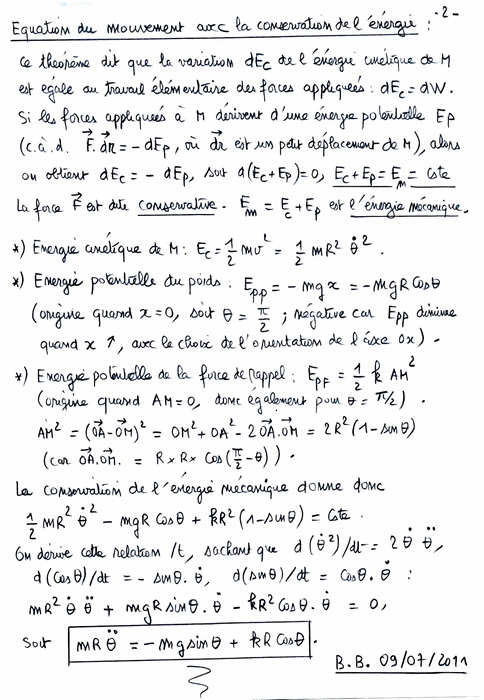 Equation du mouvement avec la conservation de l'énergie : -2-
Ce théorème dit que la variation dEc de l'énergie cinétique de M
est égale au travail élémentaire des forces appliquées : dEc = dW.
Si les forces appliquées à M dérivent d'une énergie potentielle Ep
(c.à.d. F⃗.dr⃗ = - dEp, où dr⃗ est un petit déplacement de M), alors
on obtient dEc = - dEp, soit d(Ec+Ep)=0, Ec+Ep = Em = Cste
La force F⃗ est dite conservative. Em = Ec+Ep est l'énergie mécanique.
*) Energie cinétique de M : Ec = 1/2 mv² = 1/2 mR² θ̇².
*) Energie potentielle du poids : Epp = - mgx = - mgR Cosθ
(origine quand x=0, soit θ = π/2 ; négative car Epp diminue
quand x ↑, avec le choix de l'orientation de l'axe Ox).
*) Energie potentielle de la force de rappel : EpF = 1/2 k AM²
(origine quand AM=0, donc également pour θ = π/2).
AM² = (OA⃗ - OM⃗)² = OM² + OA² - 2 OA⃗.OM⃗ = 2R² (1 - sinθ)
(car OA⃗.OM⃗ = R × R × Cos(π/2 - θ)).
La conservation de l'énergie mécanique donne donc
1/2 mR² θ̇² - mgR Cosθ + kR² (1 - sinθ) = Cste.
On dérive cette relation /t, sachant que d(θ̇²)/dt = 2 θ̇ θ̈,
d(Cosθ)/dt = - sinθ. θ̇, d(sinθ)/dt = Cosθ. θ̇ :
mR² θ̇ θ̈ + mgR sinθ. θ̇ - kR² Cosθ. θ̇ = 0,
Soit mR θ̈ = - mg sinθ + kR Cosθ.
B.B. 09/07/2011